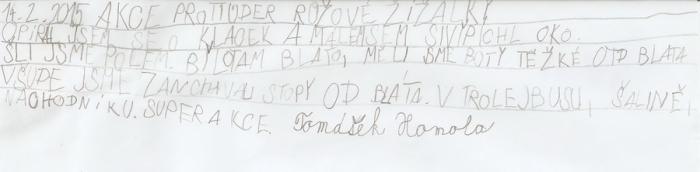 14.2.2015 AKCE PROTIÚDER RŮŽOVÉ ŽÍŽALKY
OPÍRAL JSEM SE O KLACEK A MÁLEMSEM SIVIPICHL OKO.
ŠLI JSME POLEM. BYLO TAM BLÁTO, MĚLI JSME BOTY TĚŽKÉ OTD BLATA
VŠUDE JSME ZANCHAVALI STOPY OD BLÁTA. V TROLEJBUSU, ŠALINĚ,
NACHODNÍKU. SUPER AKCE. Tomášek Homola